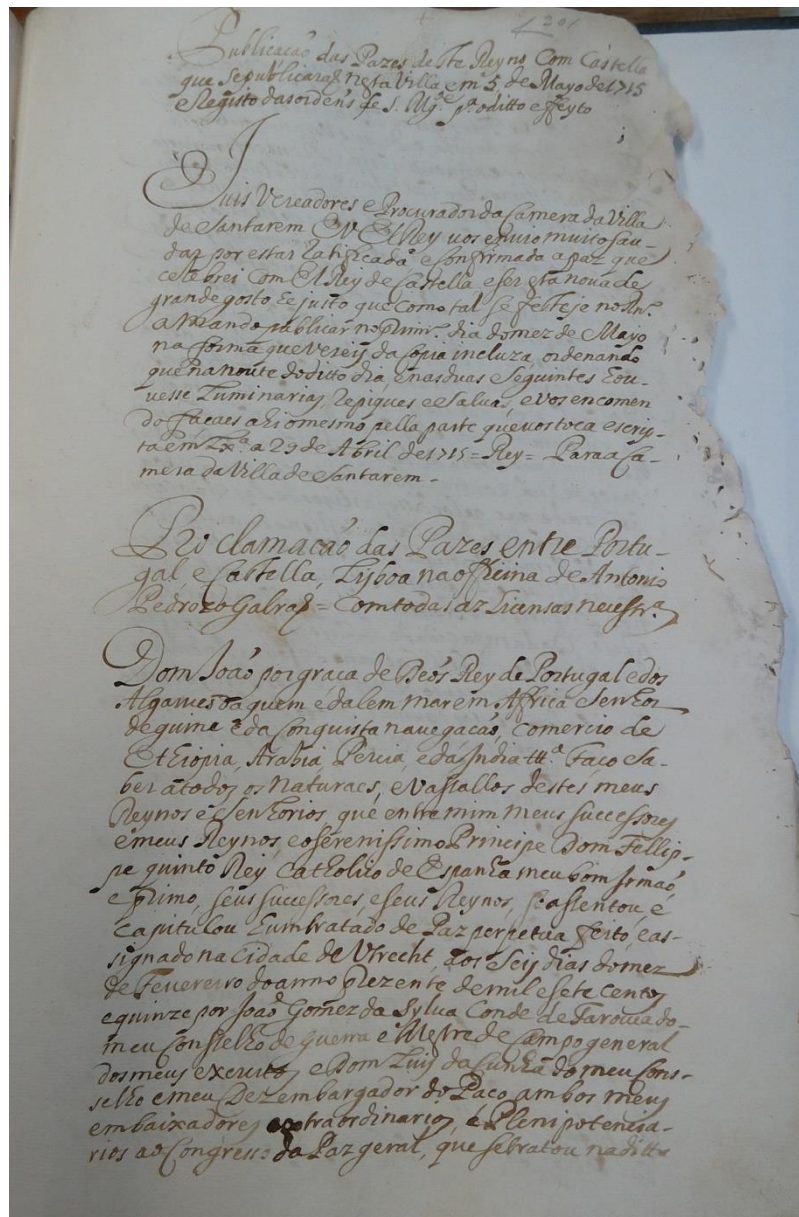 201
Publicacaõ das Pazes deste Reyno Com Castella
que Sepublicaraõ nesta Villa em 5 de Mayo de 1715
e Registo das ordens de S. Mg.e p.a o ditto efeyto
Juis Vereadores e Procurador da Camera da Villa
de Santarem Eu El Rey vos envio muito Sau-
dar por estar Ratificada e Confirmada a paz que
celebrei Com El Rey de Castella e ser esta nova de
grande gosto, e ejusto que como tal se festeje no Rn.o
a mando publicar no prim.ro dia do mez de Mayo
na forma que vereis da Copia incluza, ordenando
que na noute do ditto dia, e nas duas Seguintes hou-
vesse Luminarias, Repiques e Salvas, e vos encomen
do façaes ahi o mesmo pella parte que vos toca escrip-
ta em Lx.a a 29 de Abril de 1715 = Rey = Para a Ca-
mera da Villa de Santarem.
Proclamacaõ das Pazes entre Portu-
gal e Castella, Lisboa na officina de Antonio
Pedrozo Galraõ = Com todas as Licensas necessr.as
Dom Joaõ por graca de Deos Rey de Portugal e dos
Algarves da quem e dalem mar em Affrica Senhor
de guine e da Conquista navegacaõ, Comercio de
Ethiopia, Arabia, Percia, e da India &.a Faço Sa-
ber a todos os Naturaes, e Vassallos destes meus
Reynos e Senhorios, que entre mim meus Successores
e meus Reynos, e o Serenissimo Principe Dom Fellip-
pe quinto Rey Catholico de Espanha meu bom Irmaõ,
e primo, seus successores, e seus Reynos, se assentou, e
Capitulou hum tratado de Paz perpetua feito, e as-
signado na Cidade de Utrecht, aos Seis dias do mez
de Fevereiro do anno prezente de mil e sete centos
e quinze por Joaõ Gomez da Sylva Conde de Tarouca do
meu Conselho de guerra e Mestre de Campo general
dos meus exercitos, e Dom Luis da Cunha do meu Cons-
selho e meu Dezembargador do Paço ambos meus
embaixadores extraordinarios, e Plenipotencia-
rios ao Congresso da Paz geral, que se tratou na ditta